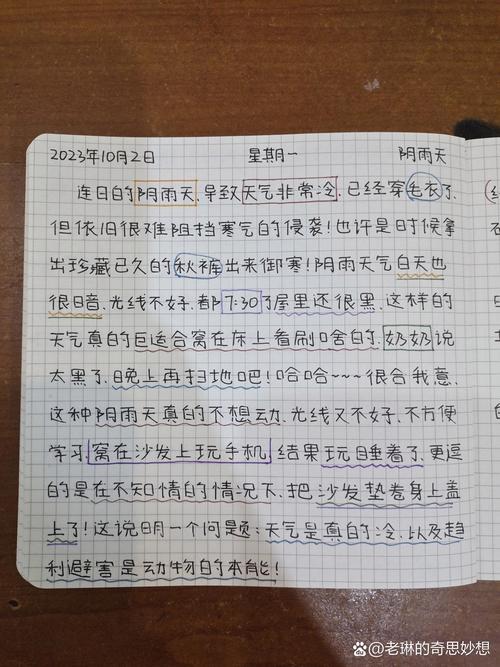 2023年10月2日 星期一 阴雨天
连日的阴雨天、导致天气非常冷、已经穿毛衣了、
但依旧很难阻挡寒气的侵袭！也许是时候拿
出珍藏已久的秋裤出来御寒！阴雨天气白天也
很暗、光线不好、都7:30了屋里还很黑、这样的
天气真的巨适合窝在床上看刷啥的、奶奶说
太黑了、晚上再扫地吧！哈哈~~~很合我意、
这种阴雨天真的不想动、光线又不好、不方便
学习、窝在沙发上玩手机、结果玩睡着了、更逗
的是在不知情的情况下、把沙发垫卷身上盖
上了！这说明一个问题：天气是真的冷、以及趋
利避害是动物的本能！
@老琳的奇思妙想